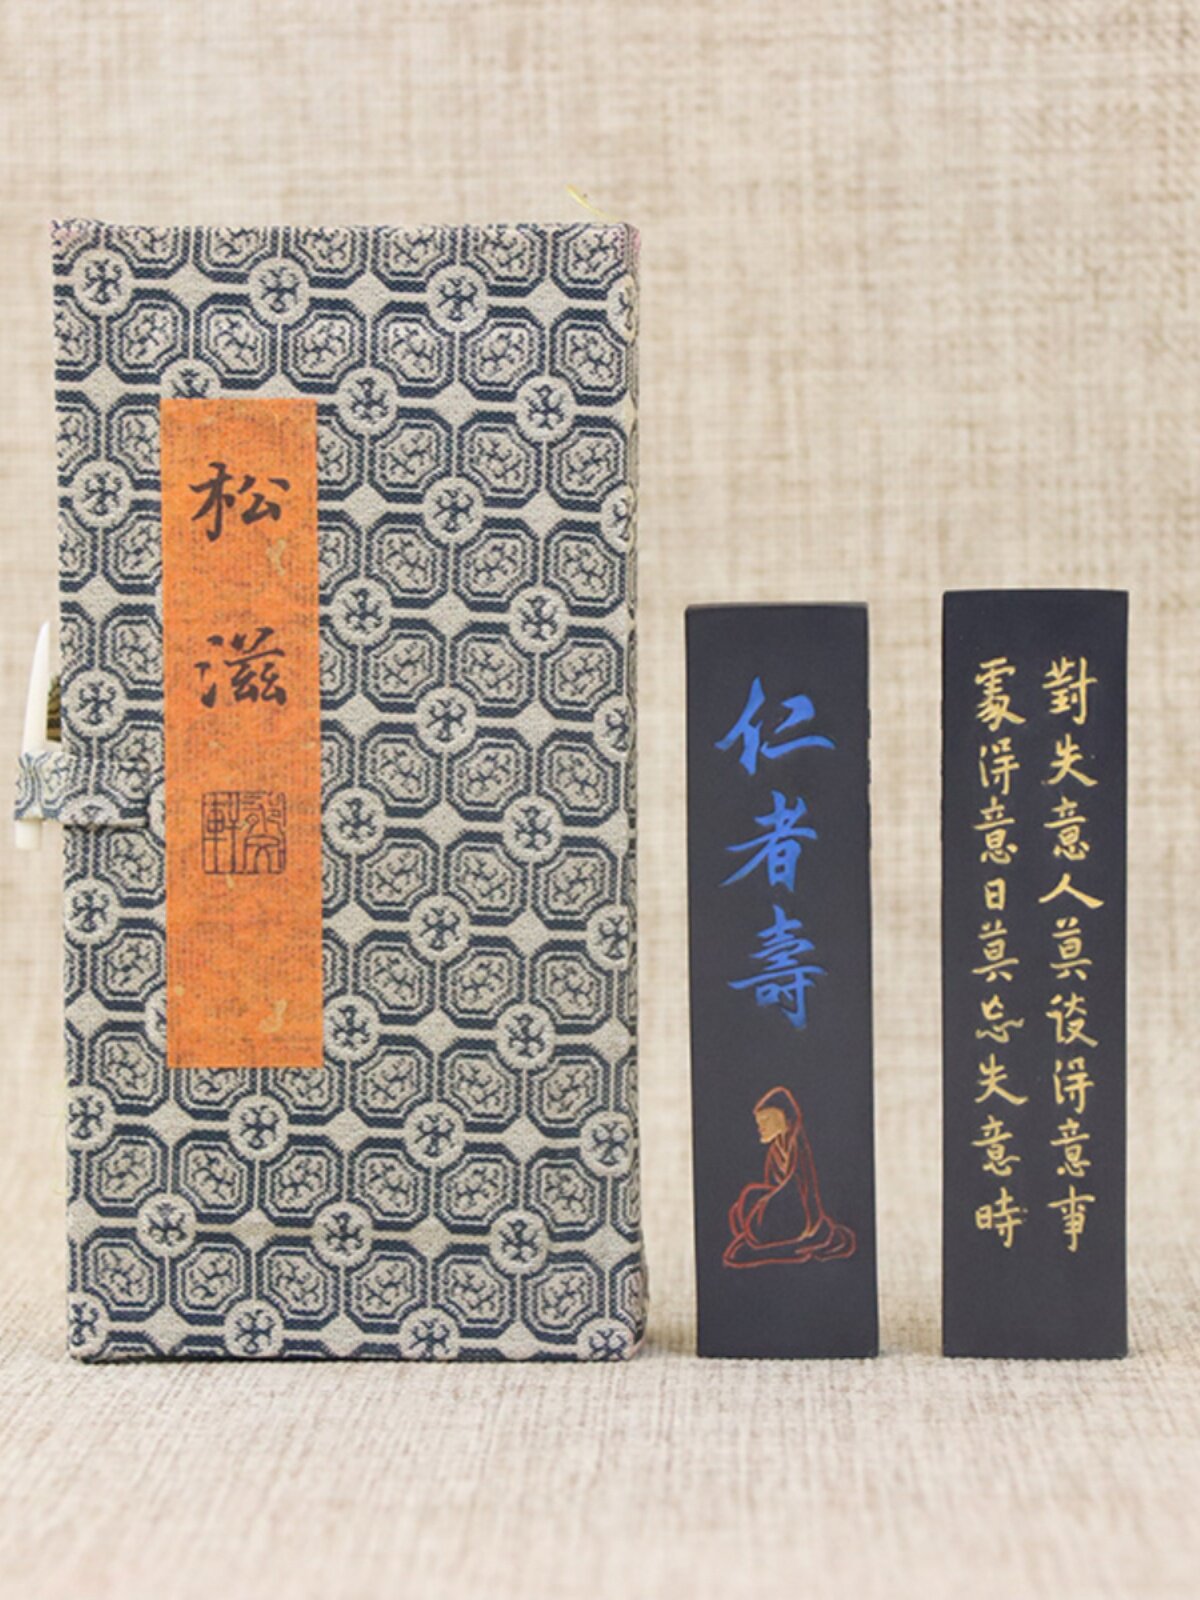 松滋
仁者壽
對失意人莫談得意事
處得意日莫忘失意時